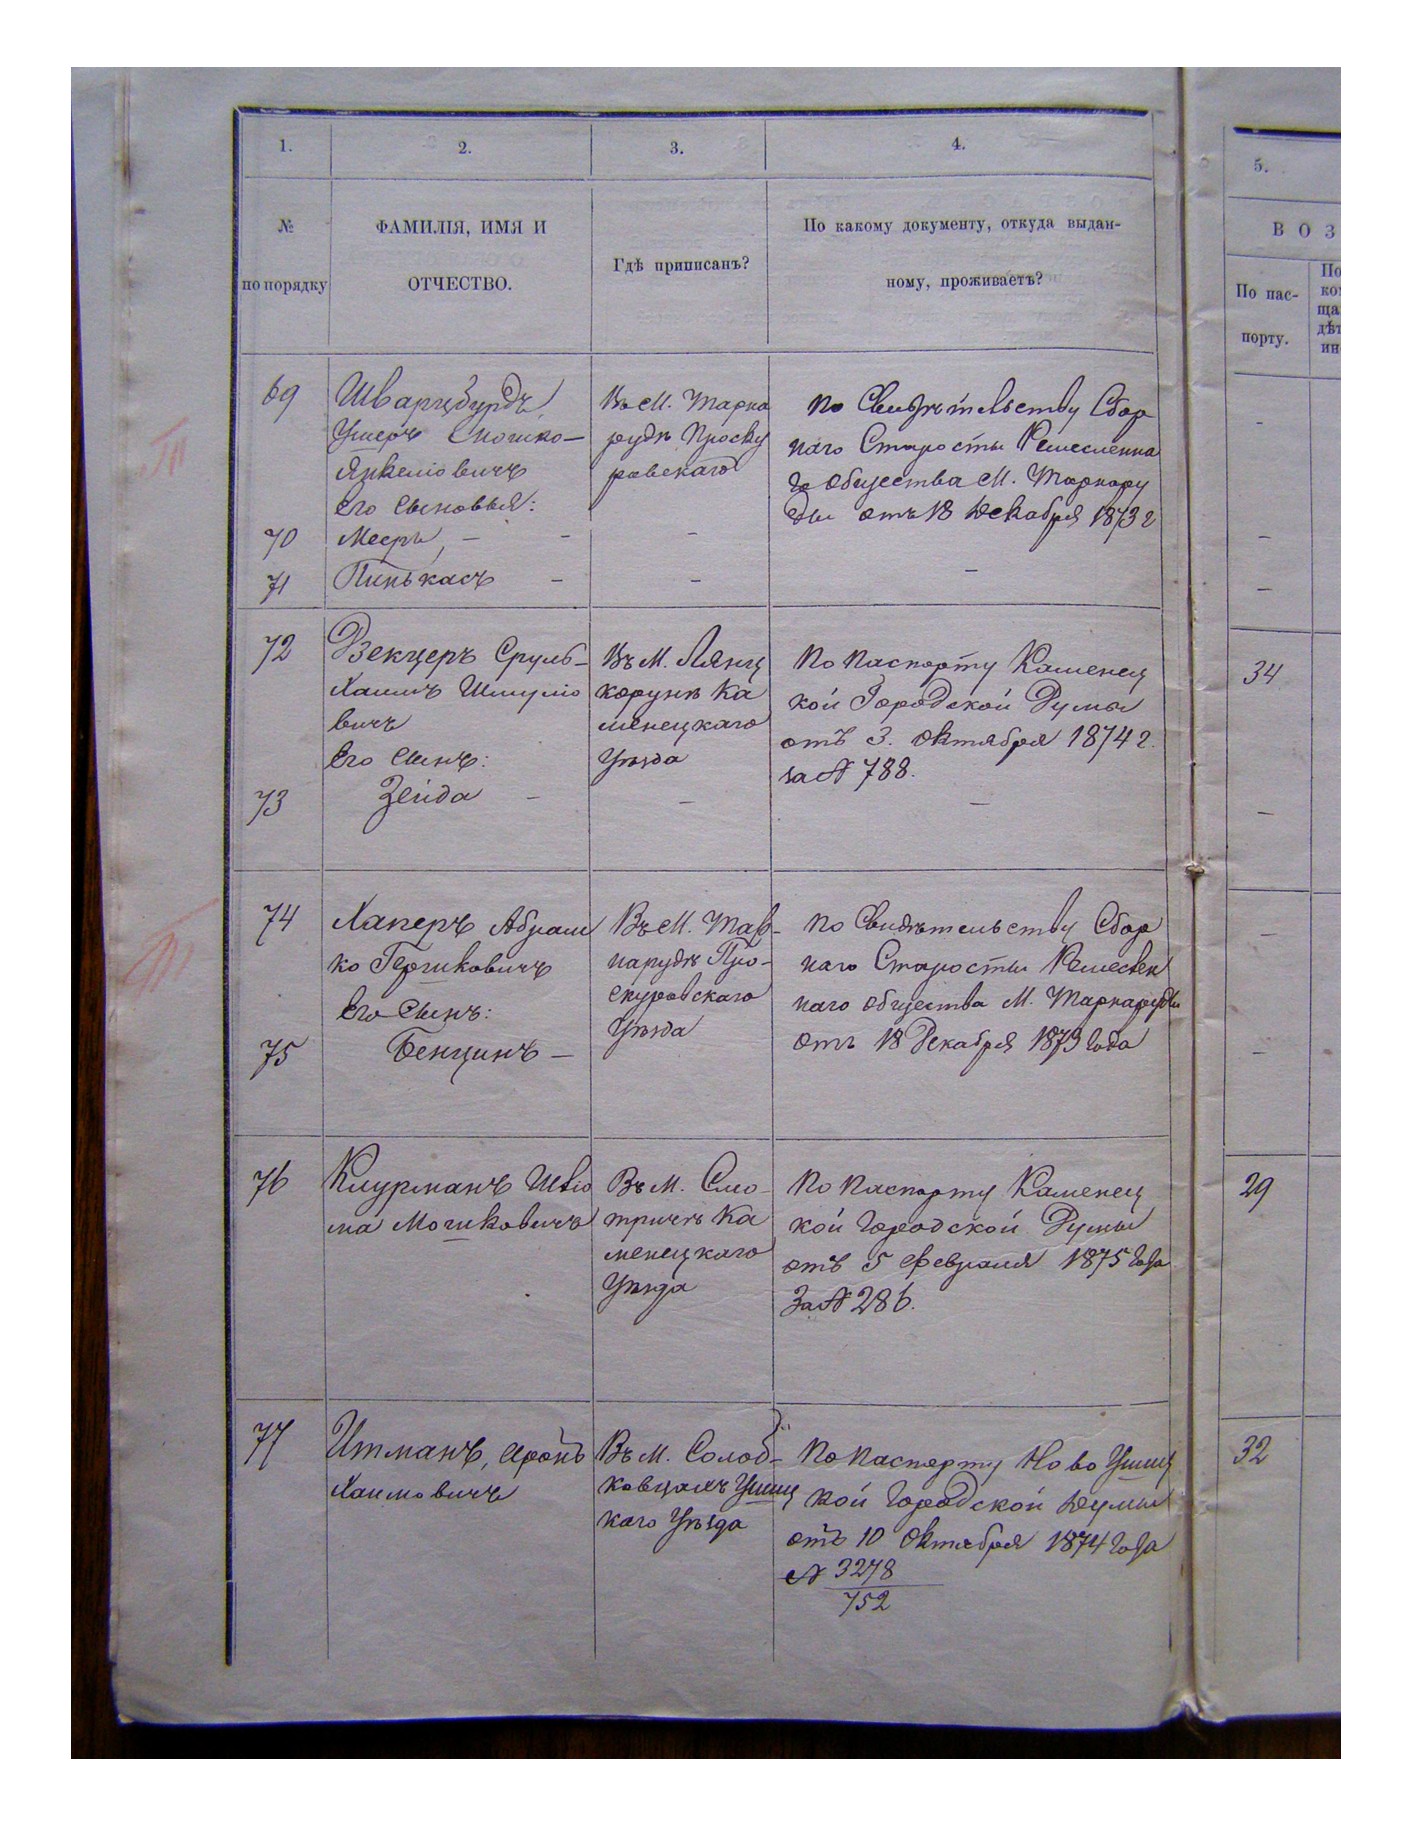 1.
2.
3.
4.
5.
№
по порядку
ФАМИЛІЯ, ИМЯ И
ОТЧЕСТВО.
Гдѣ приписанъ?
По какому документу, откуда выдан-
ному, проживаетъ?
В О З
По пас-
порту.
69
Шварцбурдъ
Ушеръ Мошко-
Янкеліовичъ
Его сыновья:
Въ М. Тарно
рудѣ Проску
ровскаго
По Свидѣтельству Сбор
наго Старосты Ремесленна
го общества М. Тарнору
ды отъ 18 Декабря 1873 г
70
Мееръ, - -
-
-
71
Пинькасъ -
-
-
-
72
Рзекцеръ Сруль-
Хаимъ Шмуліо
вичъ
Его сынъ:
Въ М. Лянц
корунѣ Ка
менецкаго
Уѣзда
По Паспорту Каменец
кой Городской Думы
отъ 3. Октября 1874 г.
за № 788.
34
73
Зейда -
-
-
-
74
Хаперъ Абрам
ко Гершковичъ
Его сынъ:
Въ М. Тар-
нарудѣ Про-
скуровскаго
Уѣзда
По Свидѣтельству Сбор
наго Старосты Ремеслен
наго общества М. Тарнаруды
отъ 18 Декабря 1873 года
-
75
Бенцинъ -
-
76
Клурманъ Шліо
ма Мошковичъ
Въ М. Смо-
тричѣ Ка
менецкаго
Уѣзда
По Паспорту Каменец
кой Городской Думы
отъ 5 Февраля 1875 года
За № 286.
29
77
Итманъ, Аронъ
Хаимовичъ
Въ М. Солод-
ковцахъ Ушиц
каго Уѣзда
По Паспорту Ново Ушиц
кой Городской Думы
отъ 10 Октября 1874 года
№ 3278
752
32